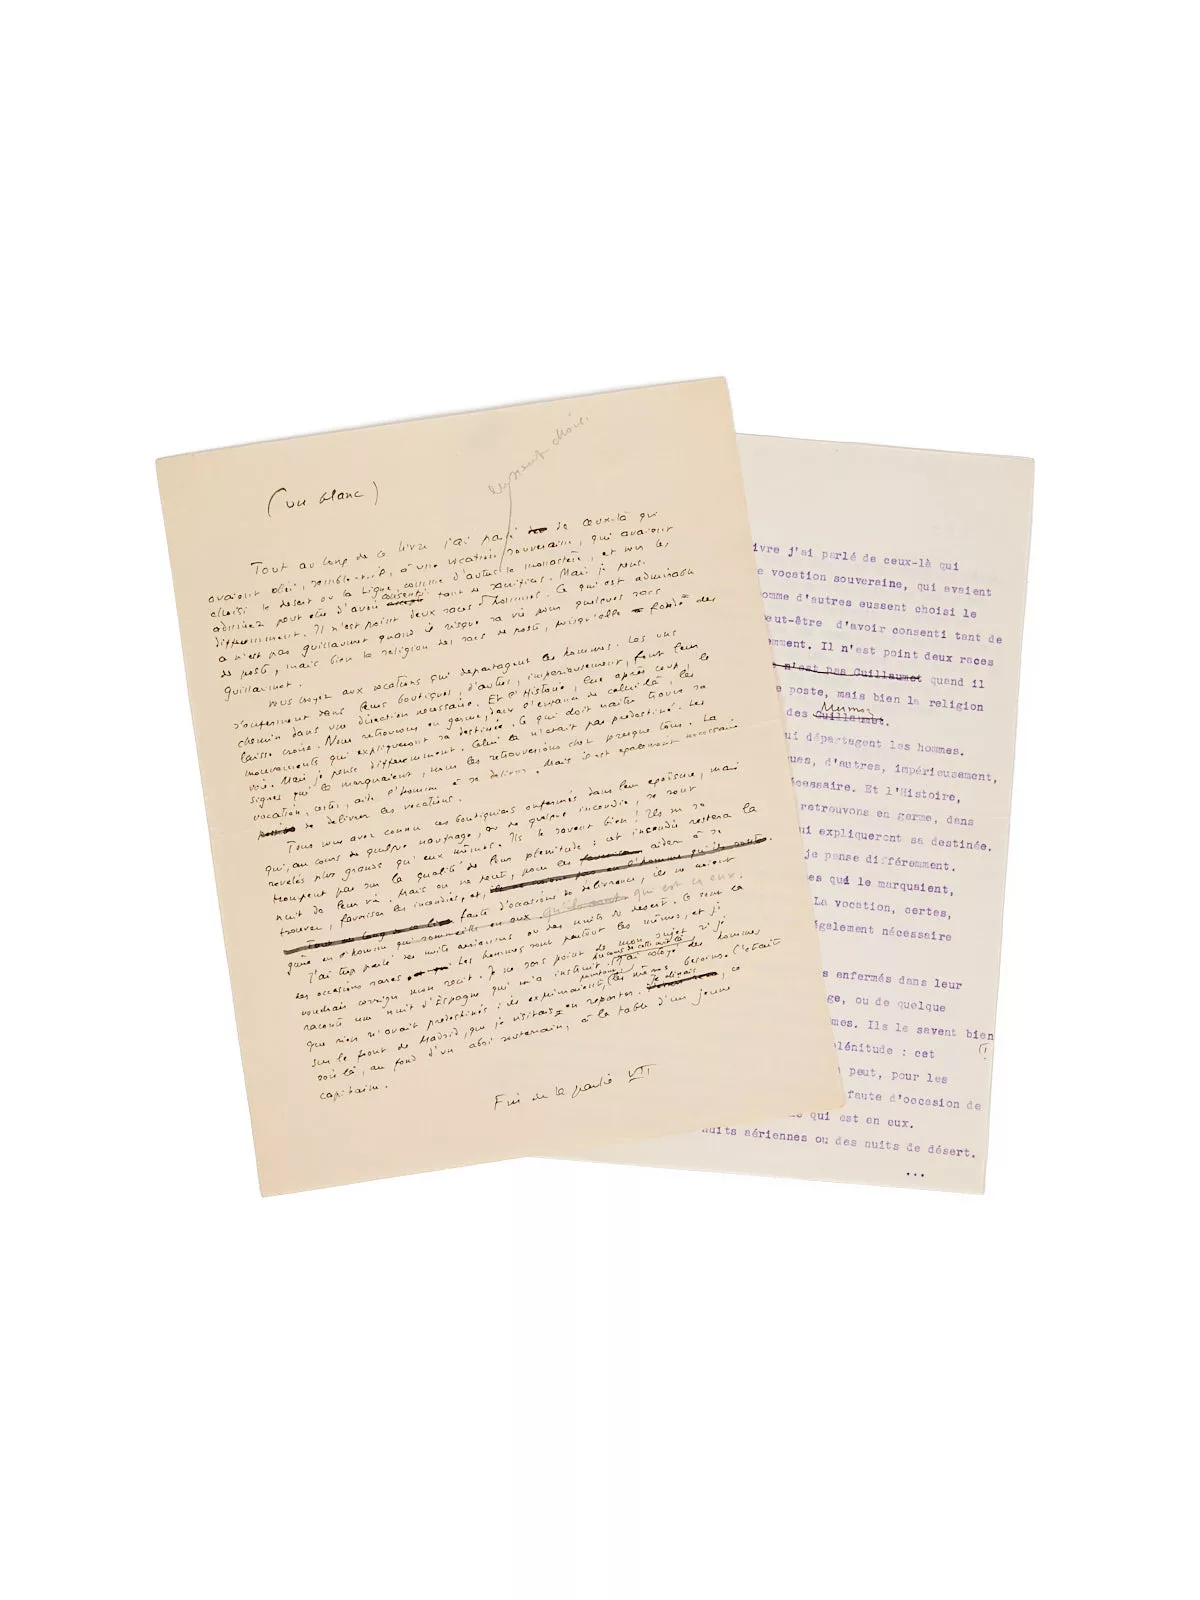 (un blanc)
Tout au long de ce livre j'ai parlé de ceux-là qui
avaient obéi, semble-t-il, à une vocation souveraine, qui avaient
choisi le désert ou la Ligne, comme d'autres le monastère, et vous les
admirez peut-être d'avoir consenti tant de sacrifices. Mais je pense
différemment. Il n'est point deux races d'hommes. Ce qui est admirable
ce n'est pas Guillaumet quand il risque sa vie pour quelques sacs
de poste, mais bien la religion des sacs de poste, puisqu'elle fonde des
Guillaumet.
Vous croyez aux vocations qui départagent les hommes. Les uns
s'enferment dans leurs boutiques, d'autres, impérieusement, font leur
chemin dans une direction nécessaire. Et l'Histoire, lue après coup, le
laisse croire. Nous retrouvons en germe, dans l'enfance de celui-là, les
mouvements qui expliqueront sa destinée. Ce qui doit naître trouve sa
voie. Mais je pense différemment. Celui-là n'était pas prédestiné. Les
signes qui le marquaient, nous les retrouverions chez presque tous. La
vocation, certes, aide l'homme à se délivrer. Mais il est également nécessaire
de délivrer les vocations.
Tous nous avons connu ces boutiquiers enfermés dans leur épaisseur, mais
qui, au cours de quelque naufrage, ou de quelque incendie, se sont
révélés plus grands qu'eux mêmes. Ils le savent bien ! Ils ne se
trompent pas sur la qualité de leur plénitude : cet incendie restera la
nuit de leur vie. Mais on ne peut, pour les aider à se
trouver, favoriser les incendies, et,
faute d'occasions de délivrance, ils ne savent
qui est en eux.
J'ai trop parlé des nuits aériennes ou des nuits de désert. Ce sont là
des occasions rares. Les hommes sont partout les mêmes, et je
voudrais corriger mon récit. Je ne sors point de mon sujet si je
raconte une nuit d'Espagne qui m'a instruit. J'ai côtoyé des hommes
que rien n'avait prédestinés : ils exprimaient les mêmes besoins. C'était
sur le front de Madrid, que je visitais en reporter. Je dînais, ce
soir là, au fond d'un abri souterrain, à la table d'un jeune
capitaine.
Fin de la partie VII
ivre j'ai parlé de ceux-là qui
e vocation souveraine, qui avaient
omme d'autres eussent choisi le
peut-être d'avoir consenti tant de
emment. Il n'est point deux races
n'est pas Guillaumet quand il
e poste, mais bien la religion
Mermoz
des Guillaumet.
ui départagent les hommes.
ques, d'autres, impérieusement,
écessaire. Et l'Histoire,
retrouvons en germe, dans
ui expliqueront sa destinée.
je pense différemment.
nes qui le marquaient,
La vocation, certes,
également nécessaire
s enfermés dans leur
ge, ou de quelque
mes. Ils le savent bien
!
plénitude : cet
peut, pour les
faute d'occasion de
qui est en eux.
nuits aériennes ou des nuits de désert.
...